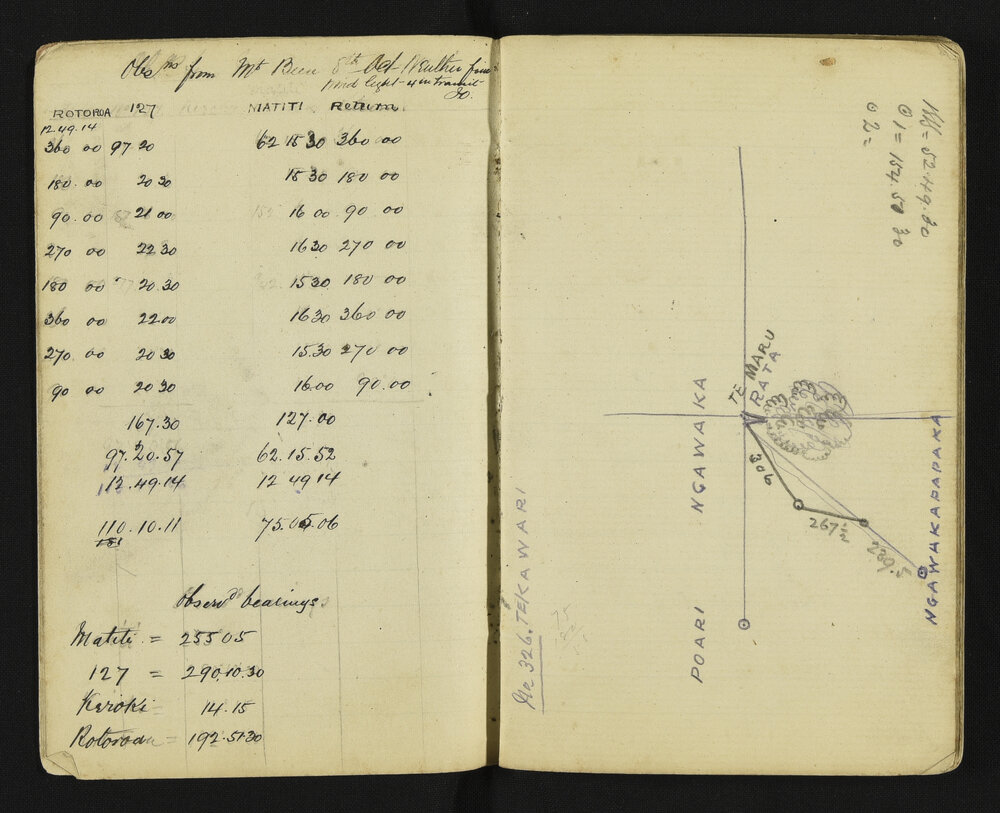 Obsns from Mt Been 8th Oct Weather fine
wind light
ROTOROA 127 MATITI Return
12.49.14
360 00 97 20 62 15 30 360 00
180.00 20 30 15 30 180 00
90.00 21 00 16 00 90 00
270 00 22 30 16 30 270 00
180 00 20.30 15 30 180 00
360 00 22.00 16 30 360 00
270.00 20 30 15.30 270 00
90 00 20 30 16.00 90.00
167.30 127.00
97.20.57 62.15.52
12.49.14 12 49 14
110.10.11 75.05.06
Observd bearings
Matiti = 255 05
127 = 290.10.30
Keroki 14.15
Rotoroa = 192.51.30
= 52.49.20
@ 1 = 154.50 20
@ 2 =
TE MARU
RATA
306
267½
220.5
NGAWAKAPAPAKA
POARI NGAWAKA
No 326. TEKAWARI
75